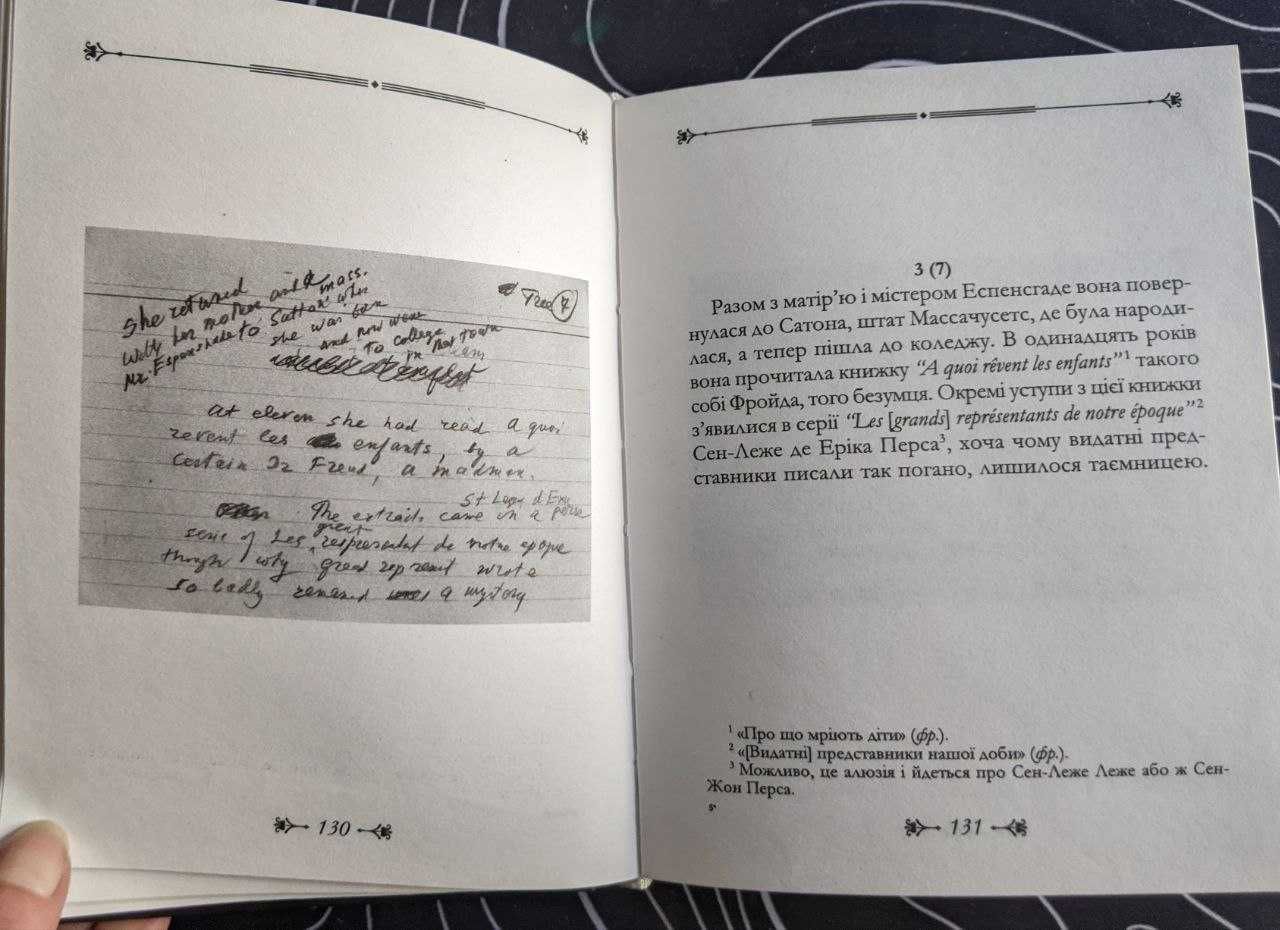 she returned
with her mother and
Mr. Espenshade to Sutton Mass. where
she was born
and now went
to college
in that town
Three 7
At eleven she had read A quoi
revent les enfants, by a
certain Dr Freud, a madman.
St Leger d'Exu
The extracts came in a perse
serie of Les great
respresentant de notre epoque
though why great represent wrote
so badly remained a mystery
130
3 (7)
Разом з матір’ю і містером Еспенсгаде вона повер-
нулася до Сатона, штат Массачусетс, де була народи-
лася, а тепер пішла до коледжу. В одинадцять років
вона прочитала книжку “A quoi rêvent les enfants”¹ такого
собі Фройда, того безумця. Окремі уступи з цієї книжки
з’явилися в серії “Les [grands] représentants de notre époque”²
Сен-Леже де Еріка Перса³, хоча чому видатні пред-
ставники писали так погано, лишилося таємницею.
¹ «Про що мріють діти» (фр.).
² «[Видатні] представники нашої доби» (фр.).
³ Можливо, це алюзія і йдеться про Сен-Леже Леже або ж Сен-
Жон Перса.
5*
131